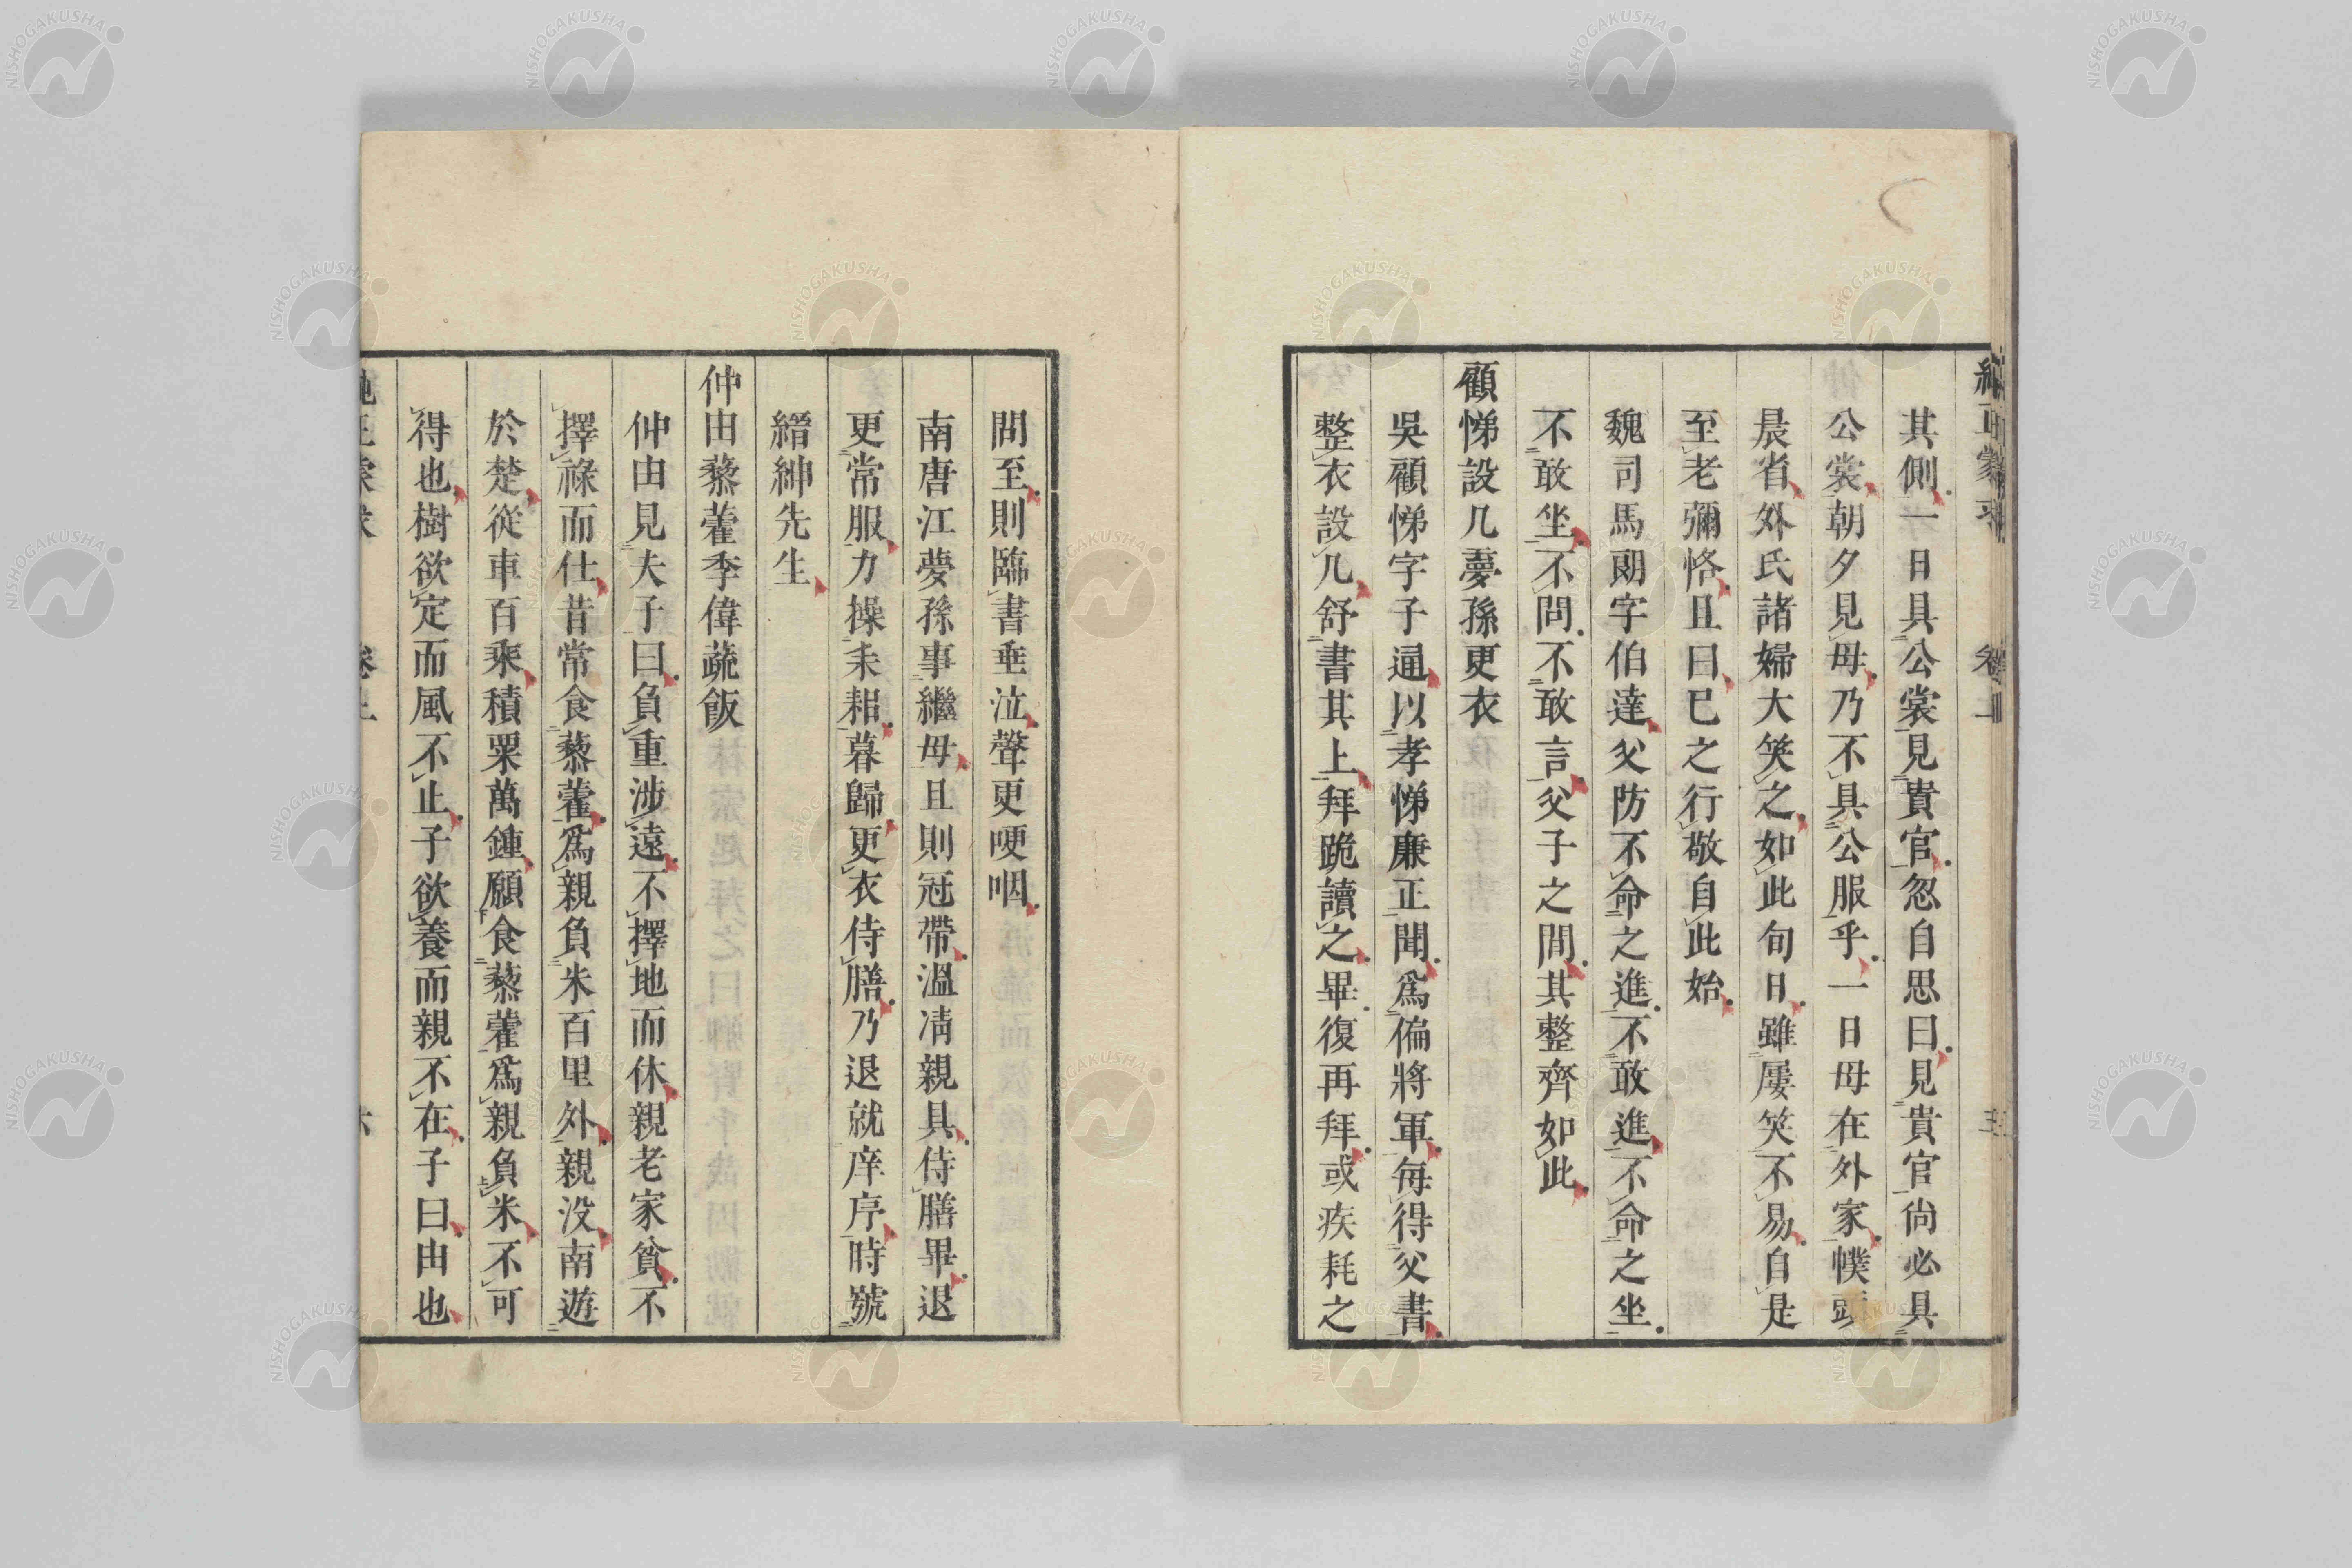 其側一日具公裳見貴官忽自思曰見貴官尙必具
公裳朝夕見母乃不具公服乎一日母在外家幞頭
晨省外氏諸婦大笑之如此旬日雖屡笑不易自是
至老彌恪且曰巳之行敬自此始
魏司馬朗字伯達父防不命之進不敢進不命之坐
不敢坐不問不敢言父子之間其整齊如此
顧悌設几夢孫更衣
吳顧悌字子通以孝悌廉正聞爲偏將軍每得父書
整衣設几舒書其上拜跪讀之畢復再拜或疾耗之
問至則臨書垂泣聲更哽咽
南唐江夢孫事繼母且則冠帶溫凊親具侍膳畢退
更常服力操耒耜暮歸更衣侍膳乃退就庠序時號
縉紳先生
仲由藜藿季偉蔬飯
仲由見夫子曰負重涉遠不擇地而休親老家貧不
擇祿而仕昔常食藜藿爲親負米百里外親没南遊
於楚從車百乘積粟萬鍾願食藜藿爲親負米不可
得也樹欲定而風不止子欲養而親不在子曰由也
NISHOGAKUSHA